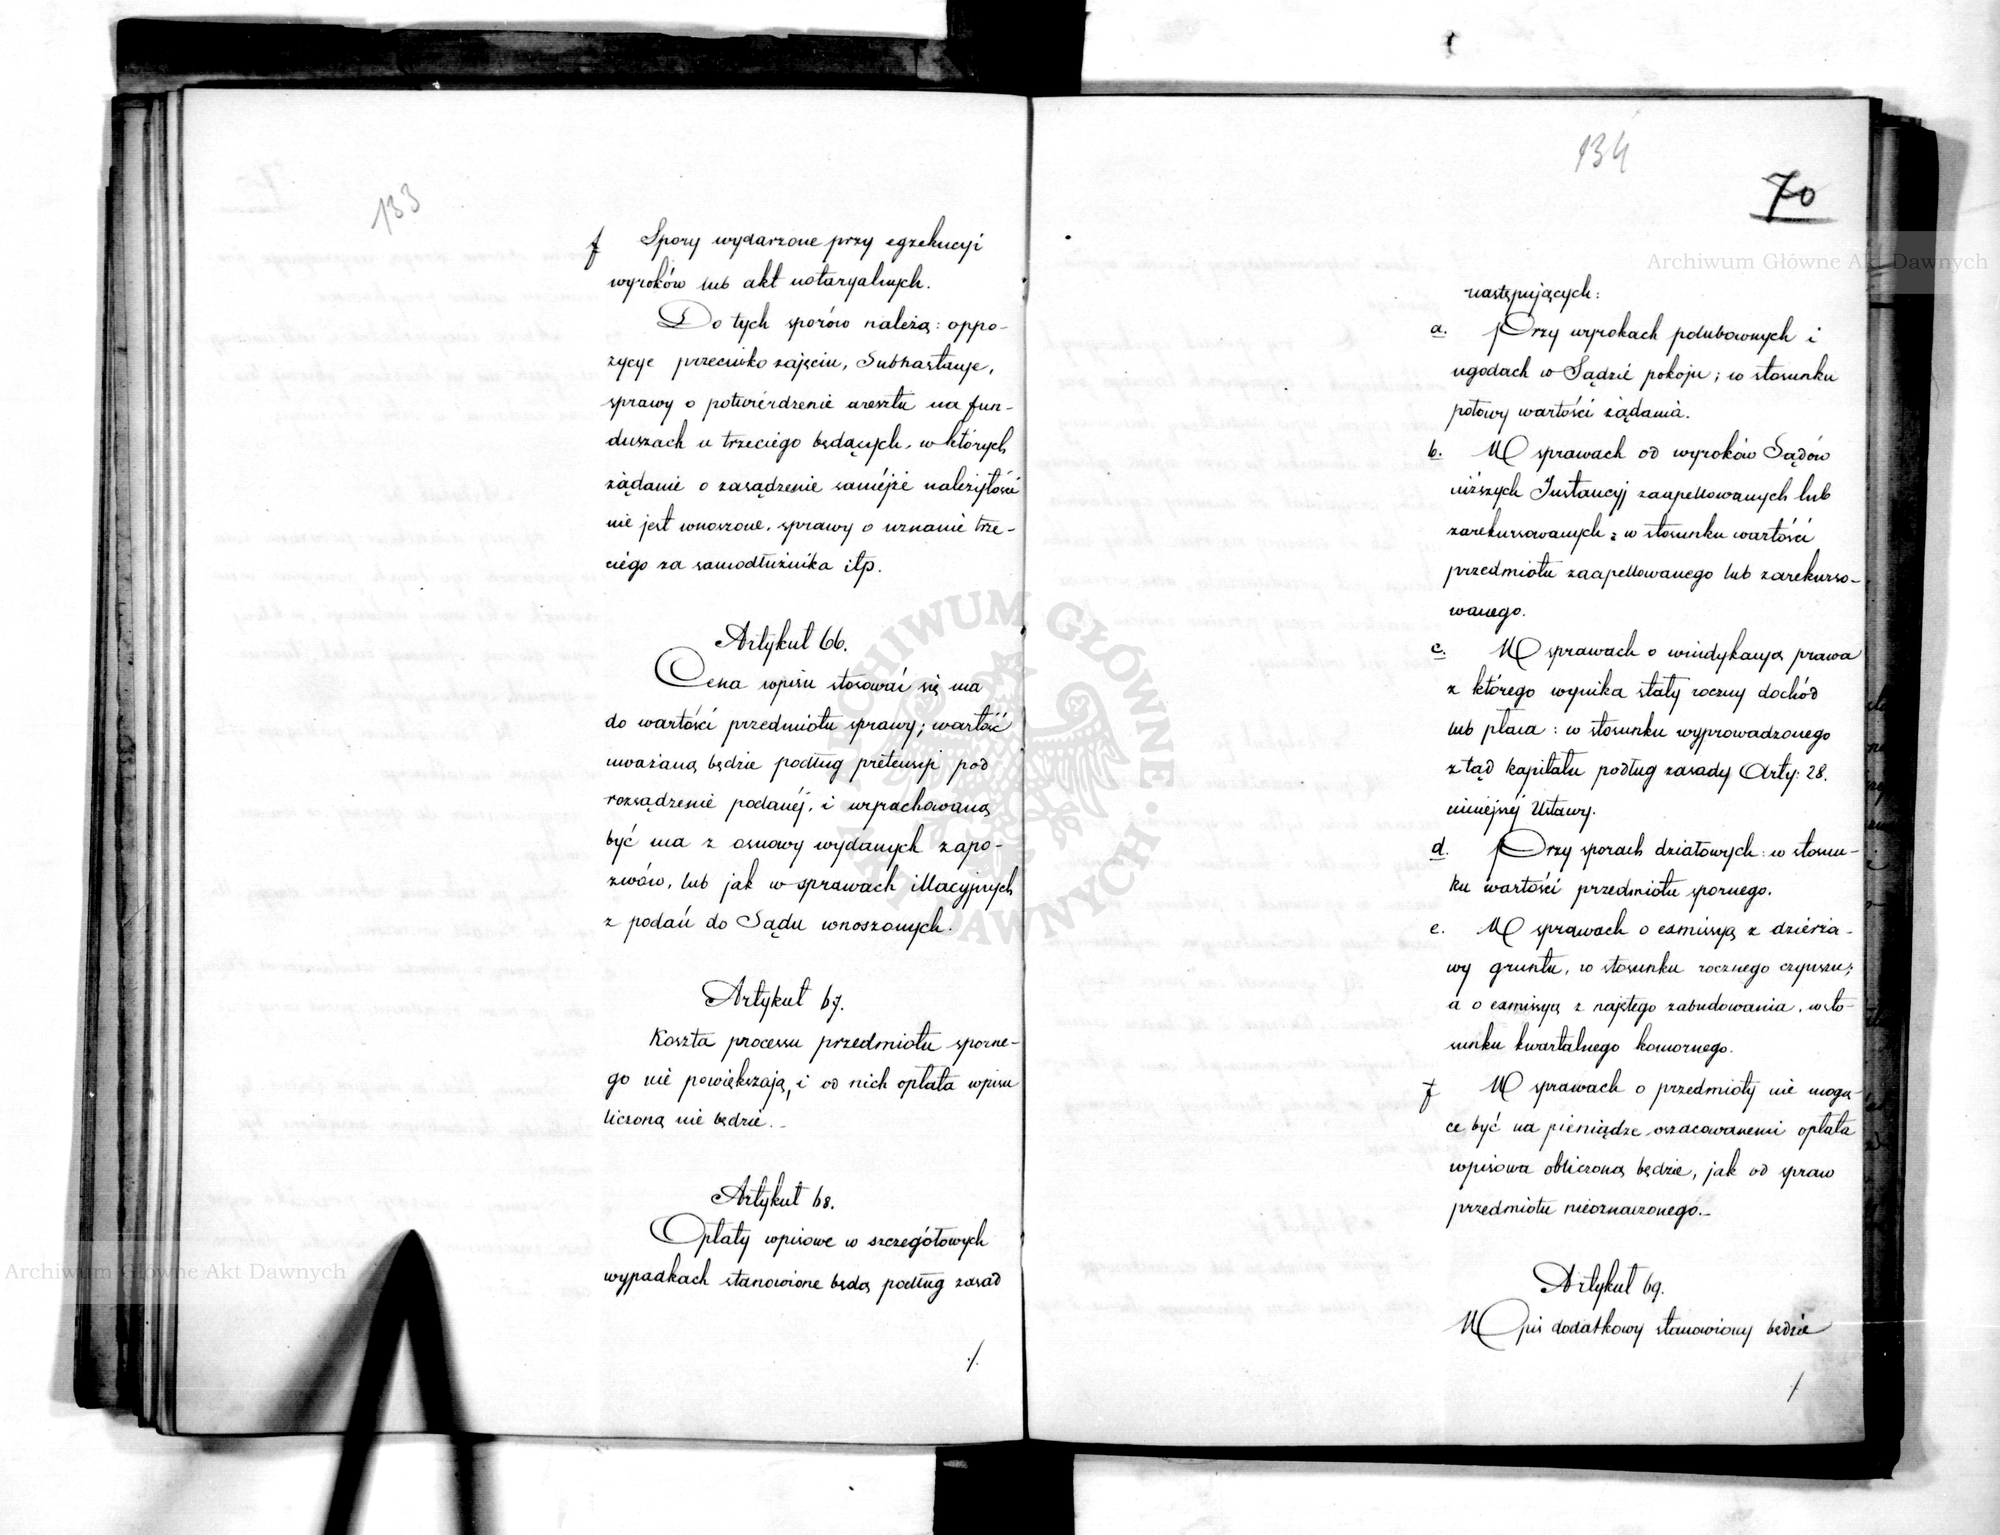 133
f Spory wydarzone przy egzekucyi
wyroków lub akt notaryalnych.
Do tych sporów należą: oppo-
zycye przeciwko zajęciu, Subhastacye,
sprawy o potwierdzenie aresztu na fun-
duszach u trzeciego będących, w których
żądanie o zasądzenie saméjże należytości
nie jest wnoszone, sprawy o uznanie trze-
ciego za samodłużnika itp.
Artykuł 66.
Cena wpisu stosować się ma
do wartości przedmiotu sprawy; wartość
uważaną będzie podług pretensyi pod
rozsądzenie podanéj, i wyrachowaną
być ma z osnowy wydanych zapo-
zwów, lub jak w sprawach illacyjnych
z podań do Sądu wnoszonych.
Artykuł 67.
Koszta processu przedmiotu sporne-
go nie powiększają, i od nich opłata wpisu
liczoną nie będzie.
Artykuł 68.
Opłaty wpisowe w szczegółowych
wypadkach stanowione będą podług zasad
./.
134
70
następujących:
a. Przy wyrokach polubownych i
ugodach w Sądzie pokoju; w stosunku
połowy wartości żądania.
b. W sprawach od wyroków Sądów
niższych Instancyj zaapellowanych lub
zarekursowanych; w stosunku wartości
przedmiotu zaapellowanego lub zarekurso-
wanego.
c. W sprawach o windykacyą prawa
z którego wynika stały roczny dochód
lub płaca: w stosunku wyprowadzonego
ztąd kapitału podług zasady Arty: 28.
niniejszéj Ustawy.
d. Przy sporach działowych: w stosun-
ku wartości przedmiotu spornego.
e. W sprawach o exmissyą z dzierża-
wy gruntu, w stosunku rocznego czynszu;
a o exmissyą z najętego zabudowania, w sto-
sunku kwartalnego komornego.
f W sprawach o przedmioty nie mogą-
ce być na pieniądze oszacowanemi opłata
wpisowa obliczoną będzie, jak od spraw
przedmiotu nieoznaczonego.
Artykuł 69.
Wpis dodatkowy stanowiony będzie
/
Archiwum Główne Akt Dawnych
Archiwum Główne Akt Dawnych
ARCHIWUM GŁÓWNE AKT DAWNYCH